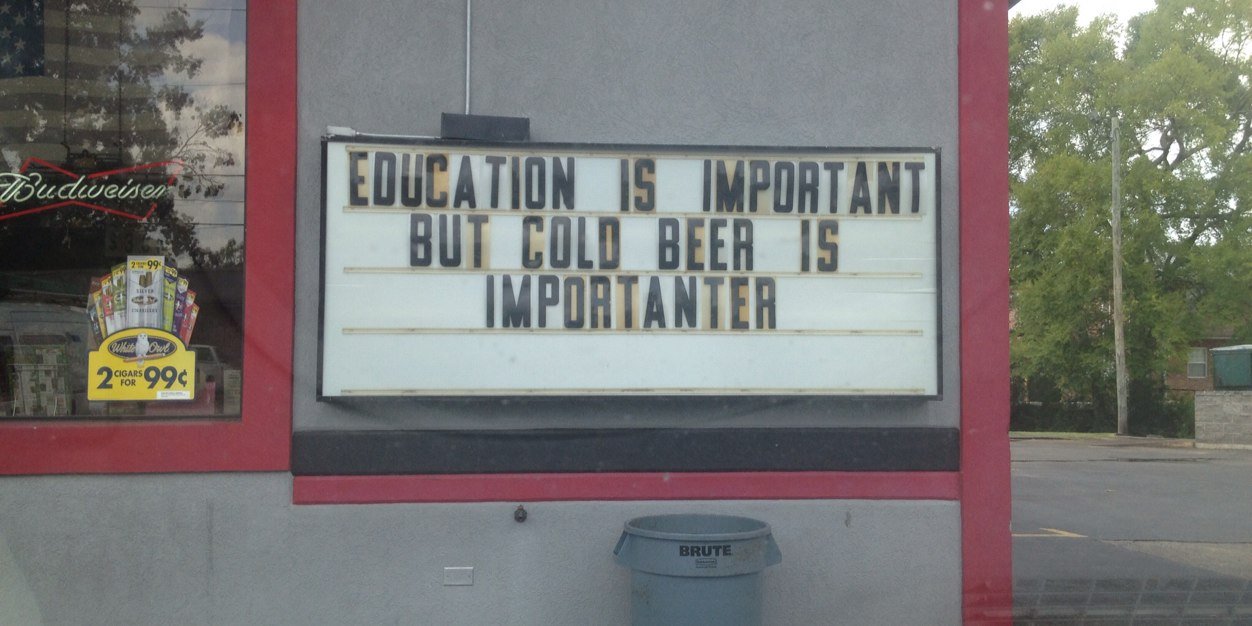 EDUCATION IS IMPORTANT
BUT COLD BEER IS
IMPORTANTER
Budweiser
2 FOR 99¢
SILVER
White Owl
2 CIGARS FOR 99¢
BRUTE